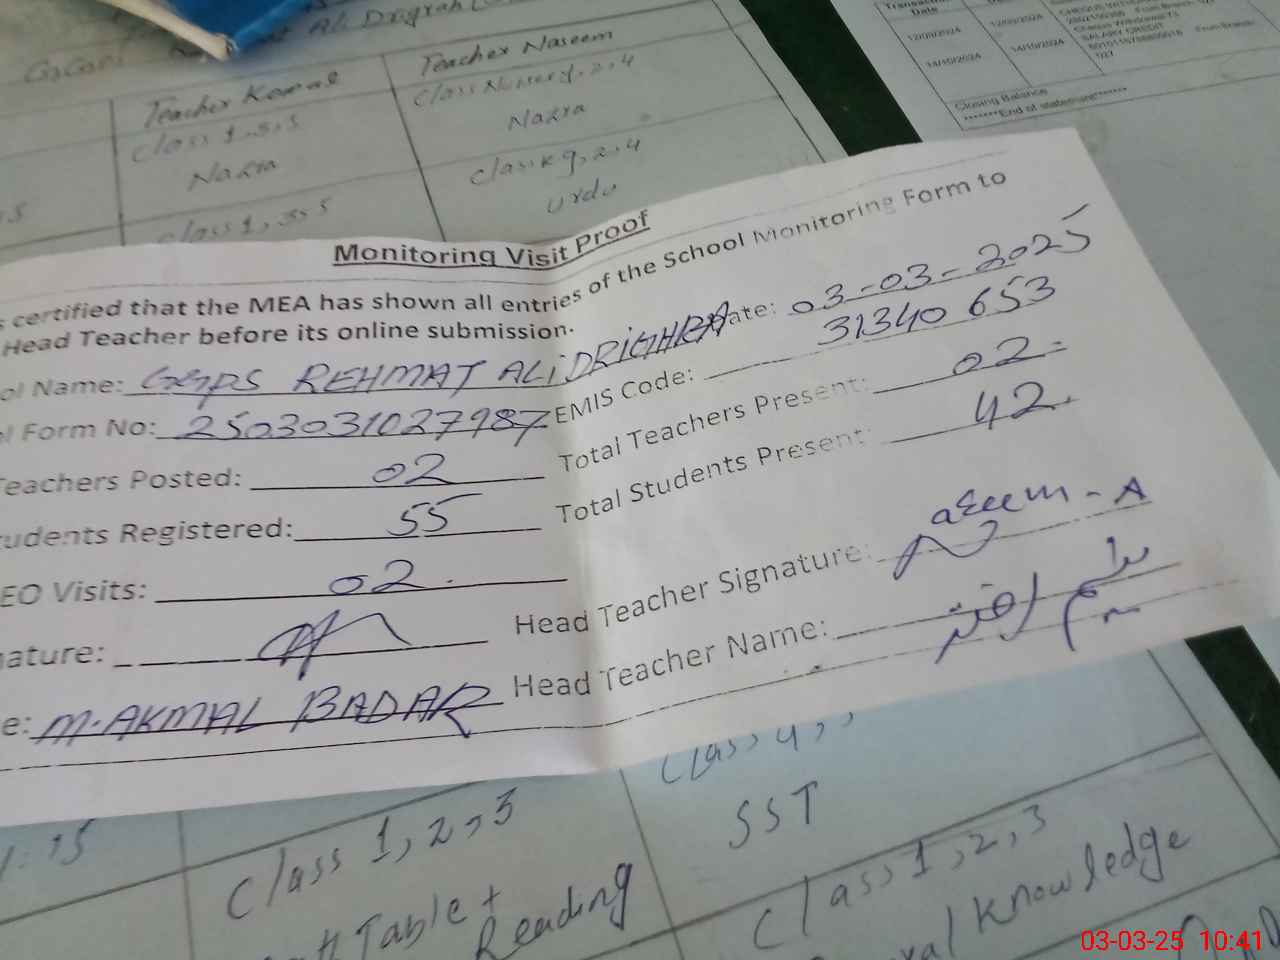 Teacher Komal
Teacher Naseem
Class 1, 3, 5
Class Nursery, 2, 4
Nazra
Nazra
Class kg, 2, 4
class 1, 3, 5
urdu
Transaction
Date
12/09/2024
12/09/2024
14/10/2024
14/10/2024
SALARY CREDIT
027
Closing Balance
*******End of statement*******
Monitoring Visit Proof
certified that the MEA has shown all entries of the School Monitoring Form to
Head Teacher before its online submission.
ol Name: GGPS REHMAT ALI DRIGHRA ate: 03-03-2025
Form No: 2503031027987 EMIS Code: 31340653
Teachers Posted: 02 Total Teachers Present: 02
udents Registered: 55 Total Students Present: 42
EO Visits: 02
nature: Head Teacher Signature: Naseem-A
e: M. AKMAL BADAR Head Teacher Name:
Class 4, 5
:15
Class 1, 2, 3
SST
Table +
Reading
Class 1, 2, 3
Knowledge
03-03-25 10:41